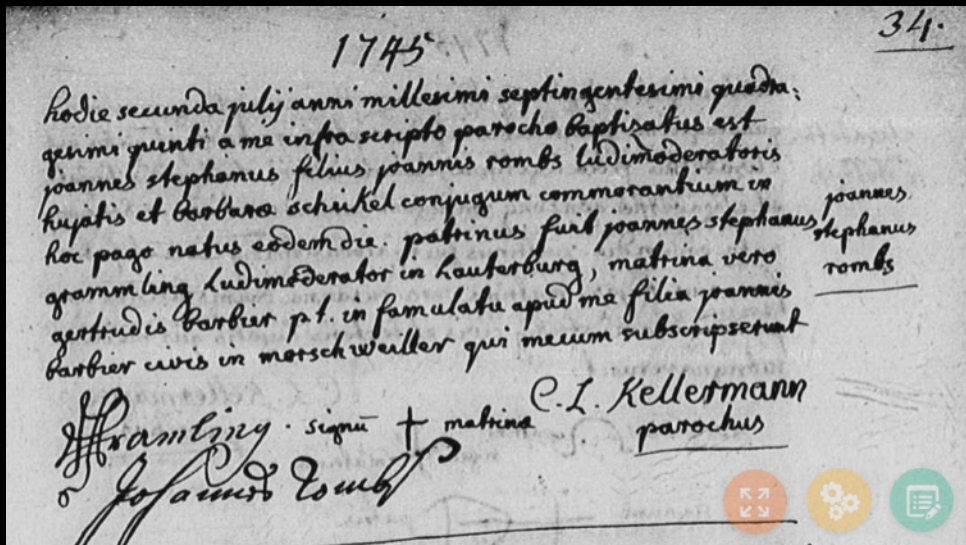 34.
1745
hodie secunda julij anni millesimi septingentesimi quadra:
gesimi quinti a me infra scripto parocho baptisatus est
joannes stephanus filius joannis rombs ludimoderatoris
hujatis et barbara schukel conjugum commorantium in
hoc pago natus eodem die. patrinus fuit joannes stephanus
grammling Ludimoderator in Lauterburg, matrina vero
gertrudis barbier p.t. in famulatu apud me filia joannis
barbier civis in morschweiller qui mecum subscripserunt
joannes
stephanus
rombs
Gramling . signū + matrina
C. L. Kellermann
parochus
Johannes Rombs